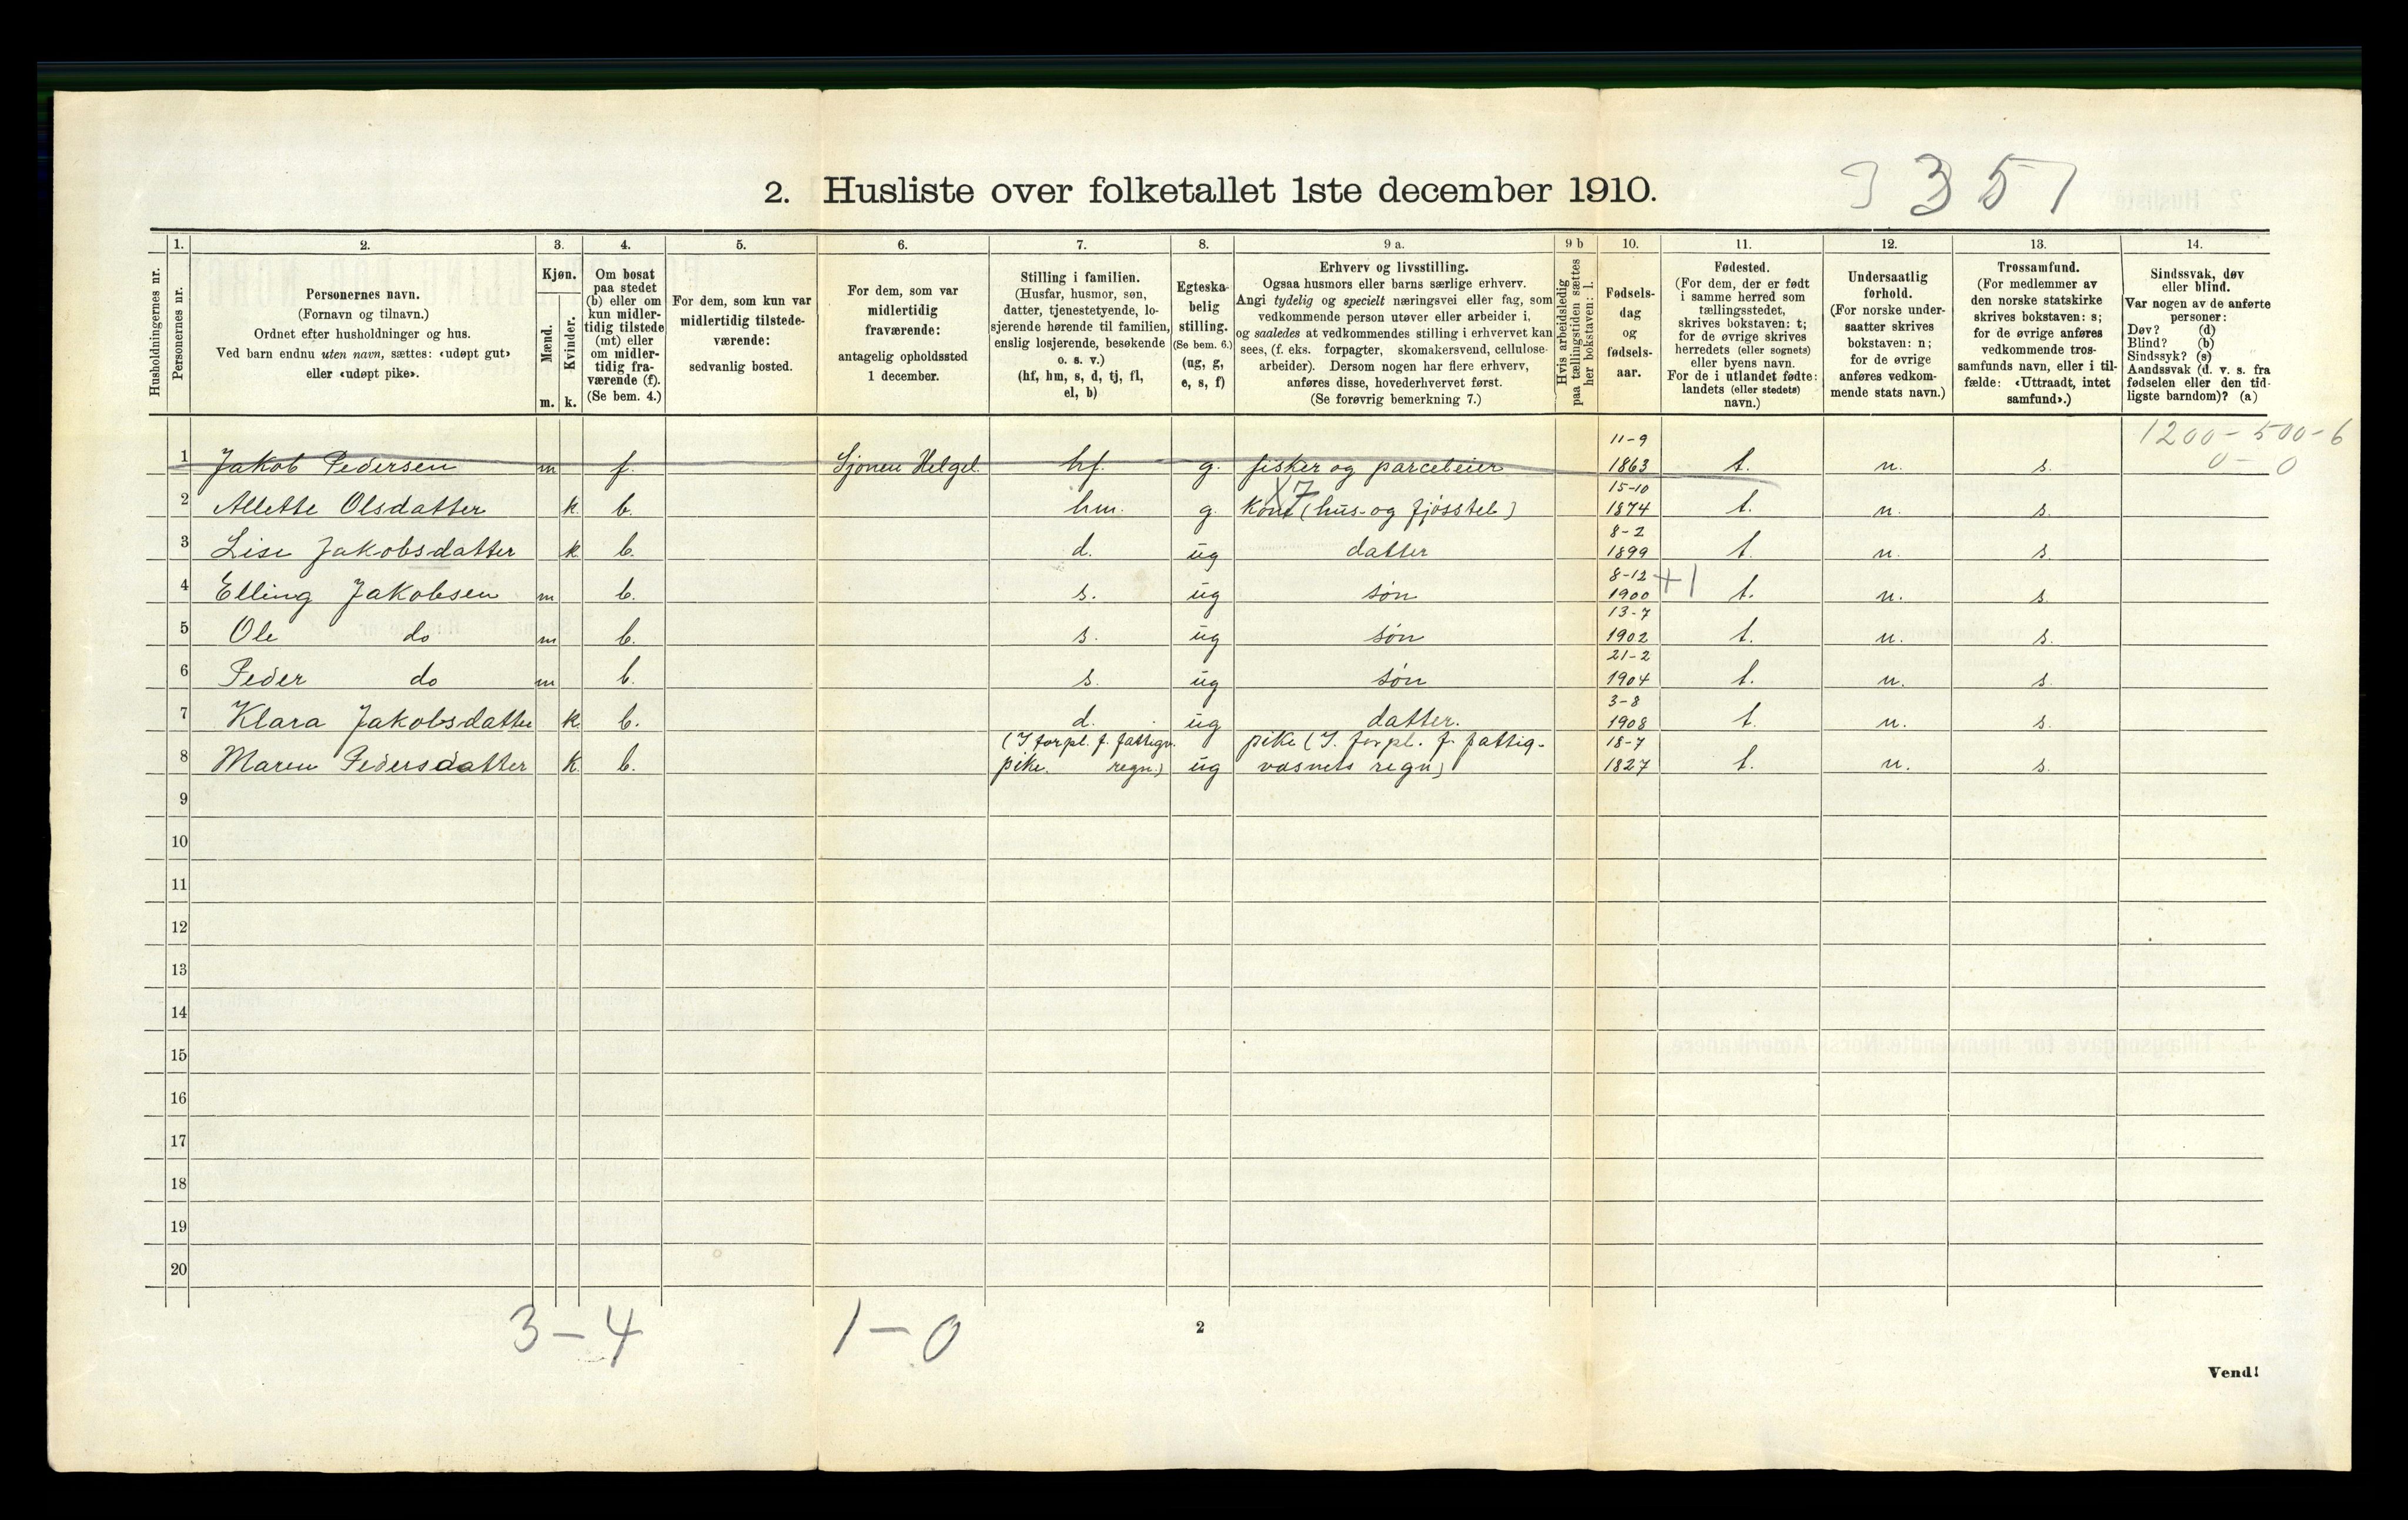 2. Husliste over folketallet 1ste december 1910.
3 3 5 7
Husholdningernes nr.
1.
Personernes nr.
2.
Personernes navn.
(Fornavn og tilnavn.)
Ordnet efter husholdninger og hus.
Ved barn endnu uten navn, sættes: «udøpt gut»
eller «udøpt pike».
3.
Kjøn.
Mænd.
Kvinder.
m. k.
4.
Om bosat
paa stedet
(b) eller om
kun midler-
tidig tilstede
(mt) eller
om midler-
tidig fra-
værende (f).
(Se bem. 4.)
5.
For dem, som kun var
midlertidig tilstede-
værende:
sedvanlig bosted.
6.
For dem, som var
midlertidig
fraværende:
antagelig opholdssted
1 december.
7.
Stilling i familien.
(Husfar, husmor, søn,
datter, tjenestetyende, lo-
sjerende hørende til familien,
enslig losjerende, besøkende
o. s. v.)
(hf, hm, s, d, tj, fl,
el, b)
8.
Egteska-
belig
stilling.
(Se bem. 6.)
(ug, g,
e, s, f)
9 a.
Erhverv og livsstilling.
Ogsaa husmors eller barns særlige erhverv.
Angi tydelig og specielt næringsvei eller fag, som
vedkommende person utøver eller arbeider i,
og saaledes at vedkommendes stilling i erhvervet kan
sees, (f. eks. forpagter, skomakersvend, cellulose-
arbeider). Dersom nogen har flere erhverv,
anføres disse, hovederhvervet først.
(Se forøvrig bemerkning 7.)
9 b
Hvis arbeidsledig
paa tællingstiden sættes
her bokstaven: l.
10.
Fødsels-
dag
og
fødsels-
aar.
11.
Fødested.
(For dem, der er født
i samme herred som
tællingsstedet,
skrives bokstaven: t;
for de øvrige skrives
herredets (eller sognets)
eller byens navn.
For de i utlandet fødte:
landets (eller stedets)
navn.)
12.
Undersaatlig
forhold.
(For norske under-
saatter skrives
bokstaven: n;
for de øvrige
anføres vedkom-
mende stats navn.)
13.
Trossamfund.
(For medlemmer av
den norske statskirke
skrives bokstaven: s;
for de øvrige anføres
vedkommende tros-
samfunds navn, eller i til-
fælde: «Uttraadt, intet
samfund».)
14.
Sindssvak, døv
eller blind.
Var nogen av de anførte
personer:
Døv? (d)
Blind? (b)
Sindssyk? (s)
Aandssvak (d. v. s. fra
fødselen eller den tid-
ligste barndom)? (a)
1200 - 500 - 6
0 - 0
1 Jakob Pedersen m f. Sjonen Helgel. hf. g. fisker og parceleier 11-9 1863 t. n. s.
2 Allette Olsdatter k. b. hm. g. Kone (hus- og fjøsstel) 15-10 1874 t. n. s.
X 7
3 Lise Jakobsdatter k b. d. ug datter 8-2 1899 t. n. s.
4 Elling Jakobsen m b. s. ug søn 8-12 1900 +1 t. n. s.
5 Ole do m b. s. ug søn 13-7 1902 t. n. s.
6 Peder do m b. s. ug søn 21-2 1904 t. n. s.
7 Klara Jakobsdatter k b. d. ug datter. 3-8 1908 t. n. s.
(I forpl. f. fattigv. pike (I. forpl. f. fattig- 18-7
8 Maren Pedersdatter k. b. pike. regn.) ug væsnets regn) 1827 t. n. s.
9
10
11
12
13
14
15
16
17
18
19
20
3 - 4 1 - 0
2
Vend!